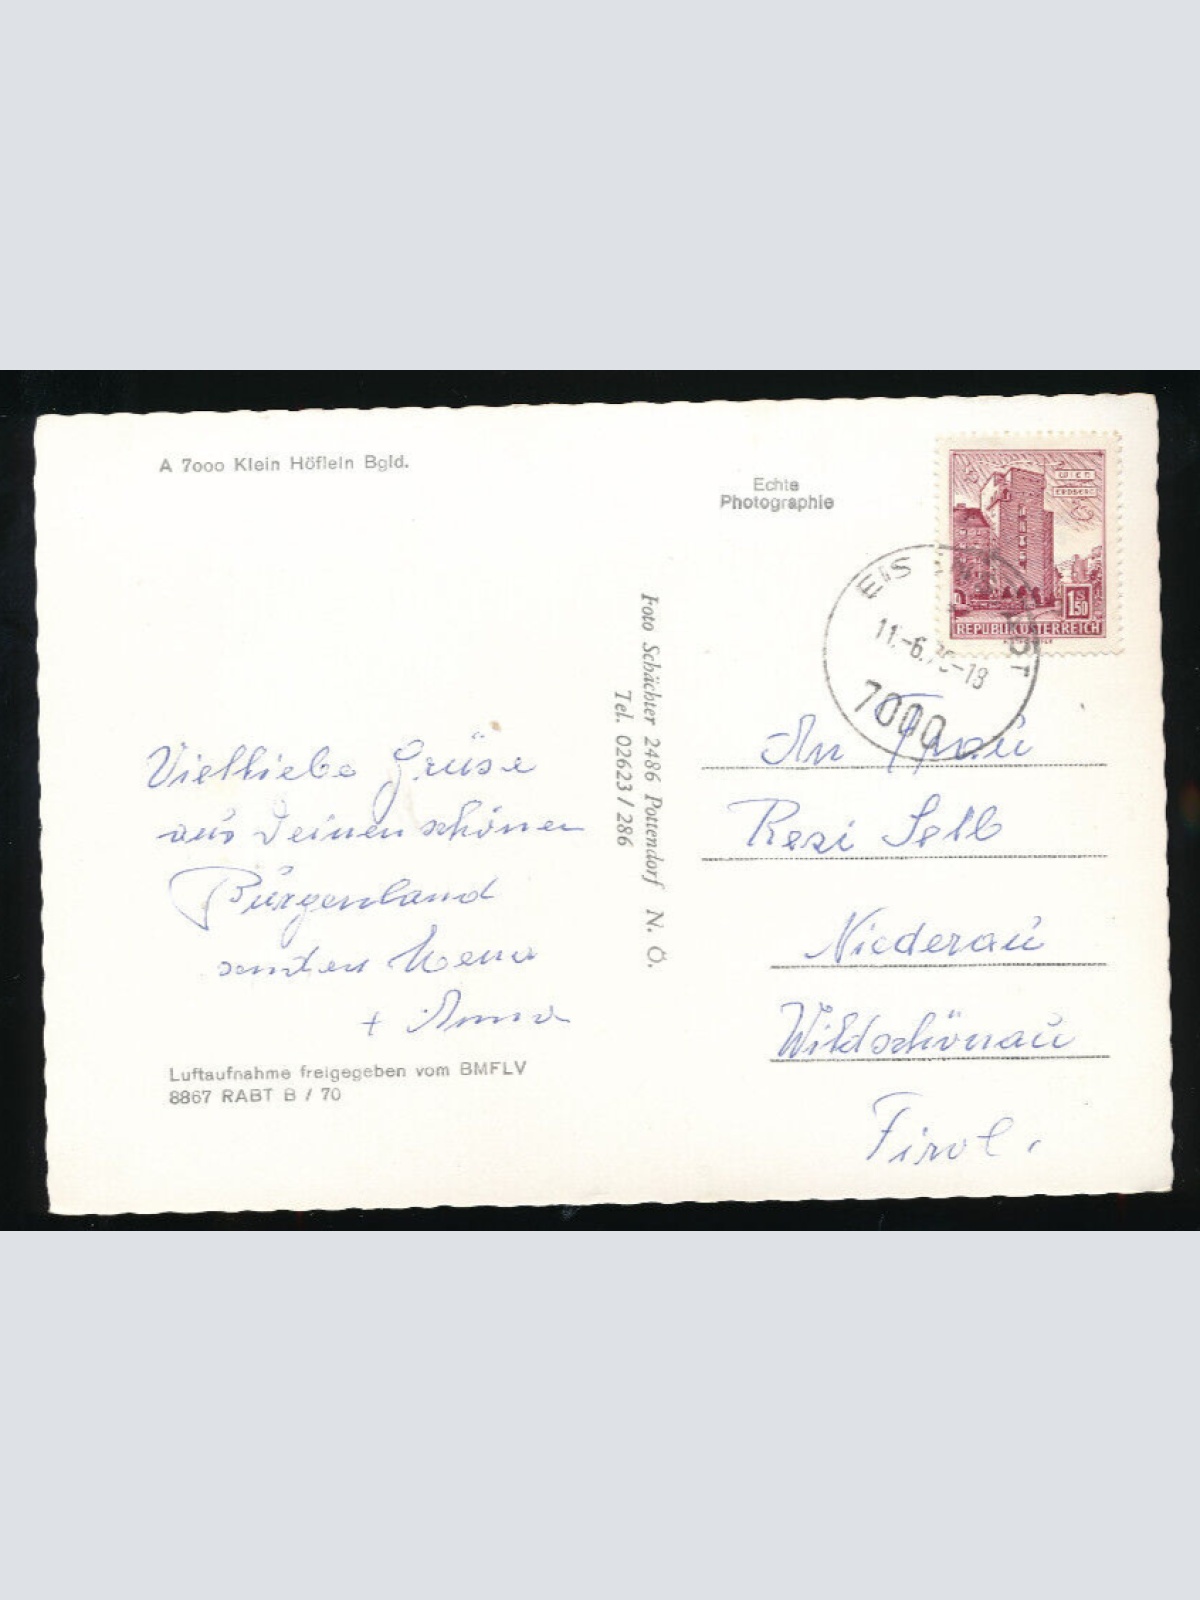 A 7000 Klein Höflein Bgld.
Echte
Photographie
WIEN
ERDBERG
S
1.50
REPUBLIK ÖSTERREICH
11.-6.
-18
7000
Foto Schächter 2486 Pottendorf N. Ö.
Tel. 02623/286
Viel liebe Grüse
aus Deinen schönen
Burgenland
senden
+ Anna
Luftaufnahme freigegeben vom BMFLV
8867 RABT B / 70
An Frau
Resi Selb
Niederau
Wildschönau
Tirol.